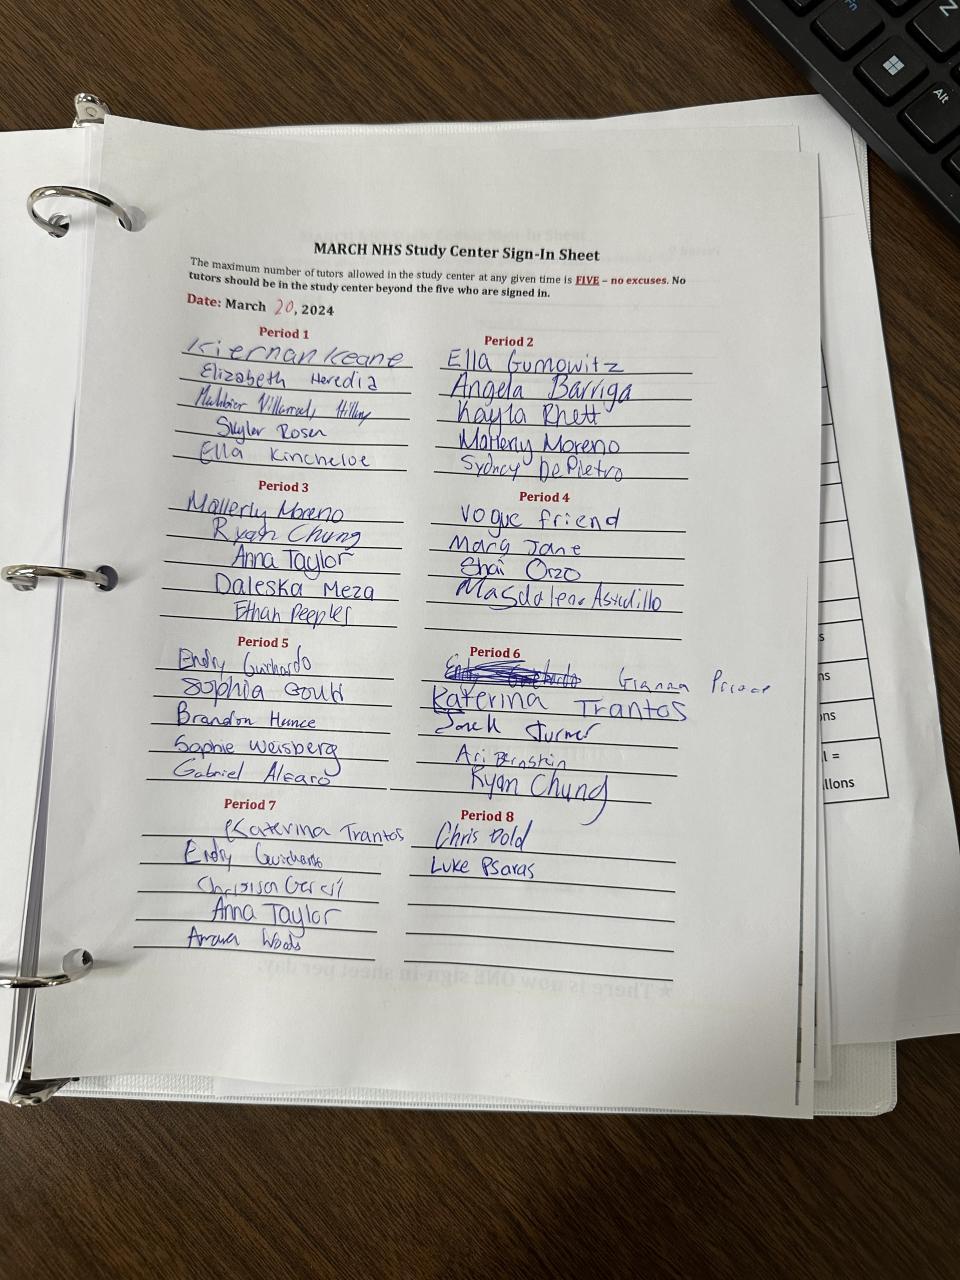 MARCH NHS Study Center Sign-In Sheet
The maximum number of tutors allowed in the study center at any given time is FIVE – no excuses. No
tutors should be in the study center beyond the five who are signed in.
Date: March 20, 2024
Period 1
Kiernan Keane
Elizabeth Heredia
Hillary
Skyler Rosen
Ella Kincheloe
Period 2
Ella Gumowitz
Angela Barriga
Kayla Rhett
Mallerly Moreno
Sydney DePietro
Period 3
Mallerly Moreno
Ryan Chung
Anna Taylor
Daleska Meza
Ethan Peeples
Period 4
Vogue friend
Mary Jane
Shai Orzo
Magdalena Astudillo
Period 5
Endry Guichardo
Sophia Gould
Brandon Hance
Sophie Weisberg
Gabriel Alfaro
Period 6
Gianna
Katerina Trantos
Jack Turner
Ari Bernstein
Ryan Chung
Period 7
Katerina Trantos
Endry Guichardo
Anna Taylor
Woods
Period 8
Chris Dold
Luke Psaras
★There is now ONE sign-in sheet per day.
s
ns
ons
l =
llons
Fn
Z
Alt